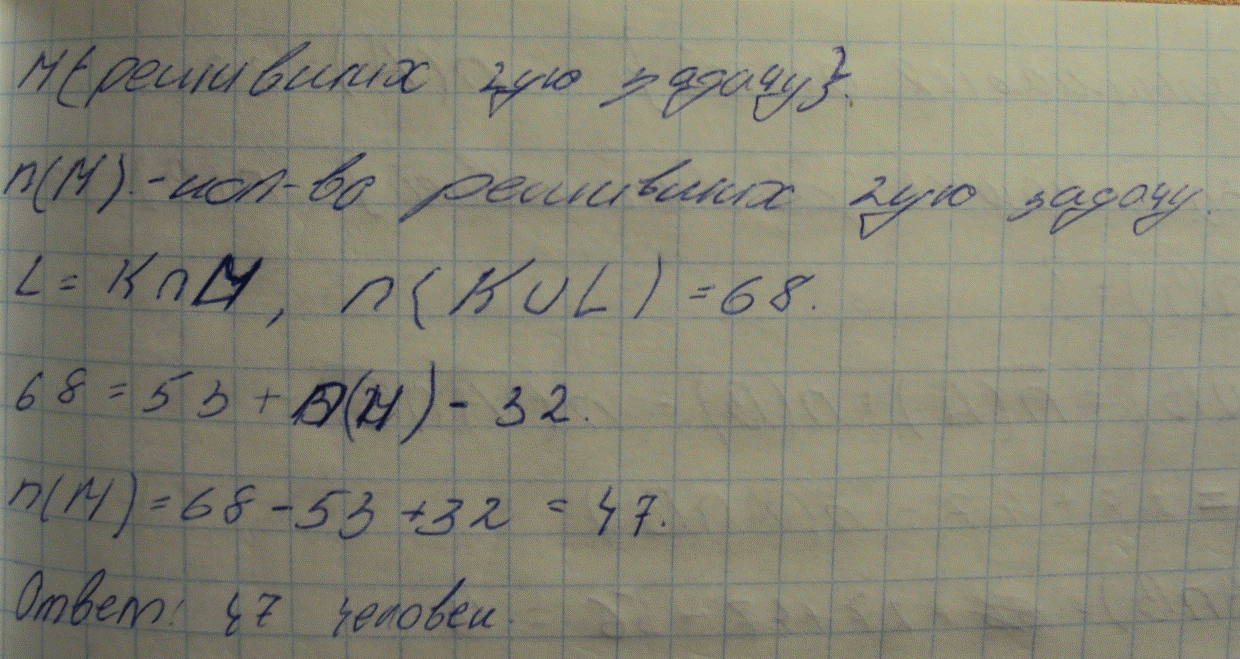 M{решивших 2ую задачу}.
n(M).-кол-во решивших 2ую задачу.
L = K∩M, n(K∪L) = 68.
68 = 53 + n(M) - 32.
n(M) = 68 - 53 + 32 = 47.
Ответ: 47 человек.